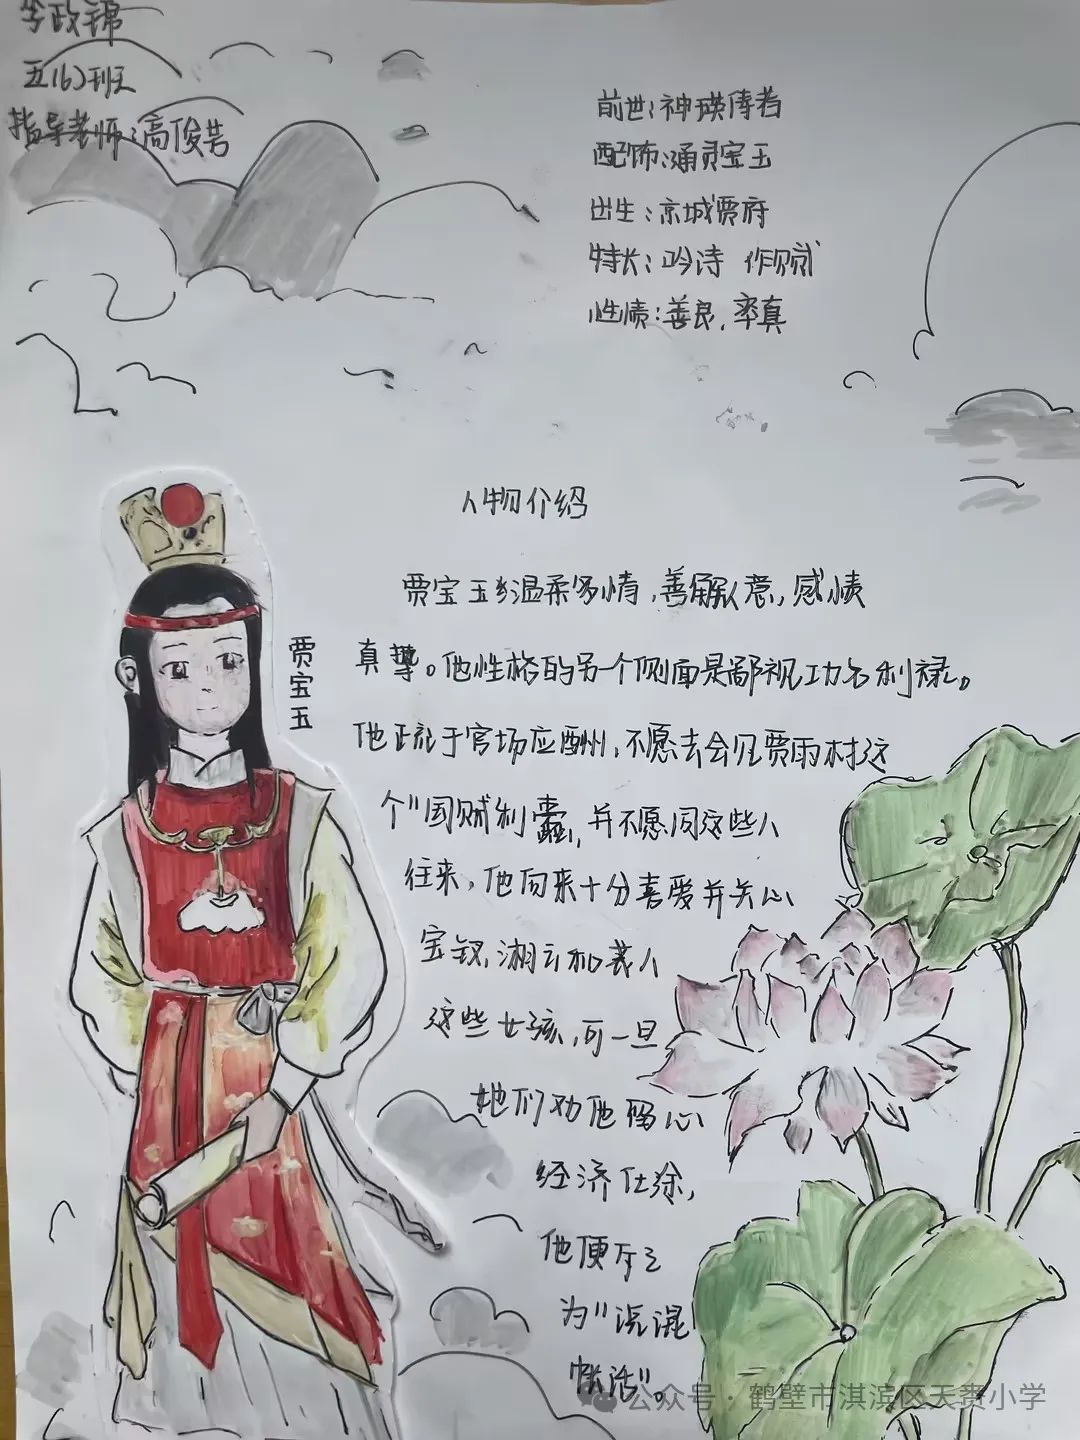 李政锦
五(6)班
指导老师:高俊芳
前世:神瑛侍者
配饰:通灵宝玉
出生:京城贾府
特长:吟诗 作赋
性情:善良,率真
人物介绍
贾宝玉
贾宝玉温柔多情,善解人意,感情
真挚。他性格的另一个侧面是鄙视功名利禄。
他于官场应酬,不愿去会见贾雨村这
个"国贼利蠹,并不愿同这些人
往来,他向来十分喜爱并关心
宝钗,湘云和袭人
这些女孩,可一旦
她们劝他留心
经济仕途,
他便斥之
为"混混
帐话"。
公众号·鹤壁市淇滨区天赉小学